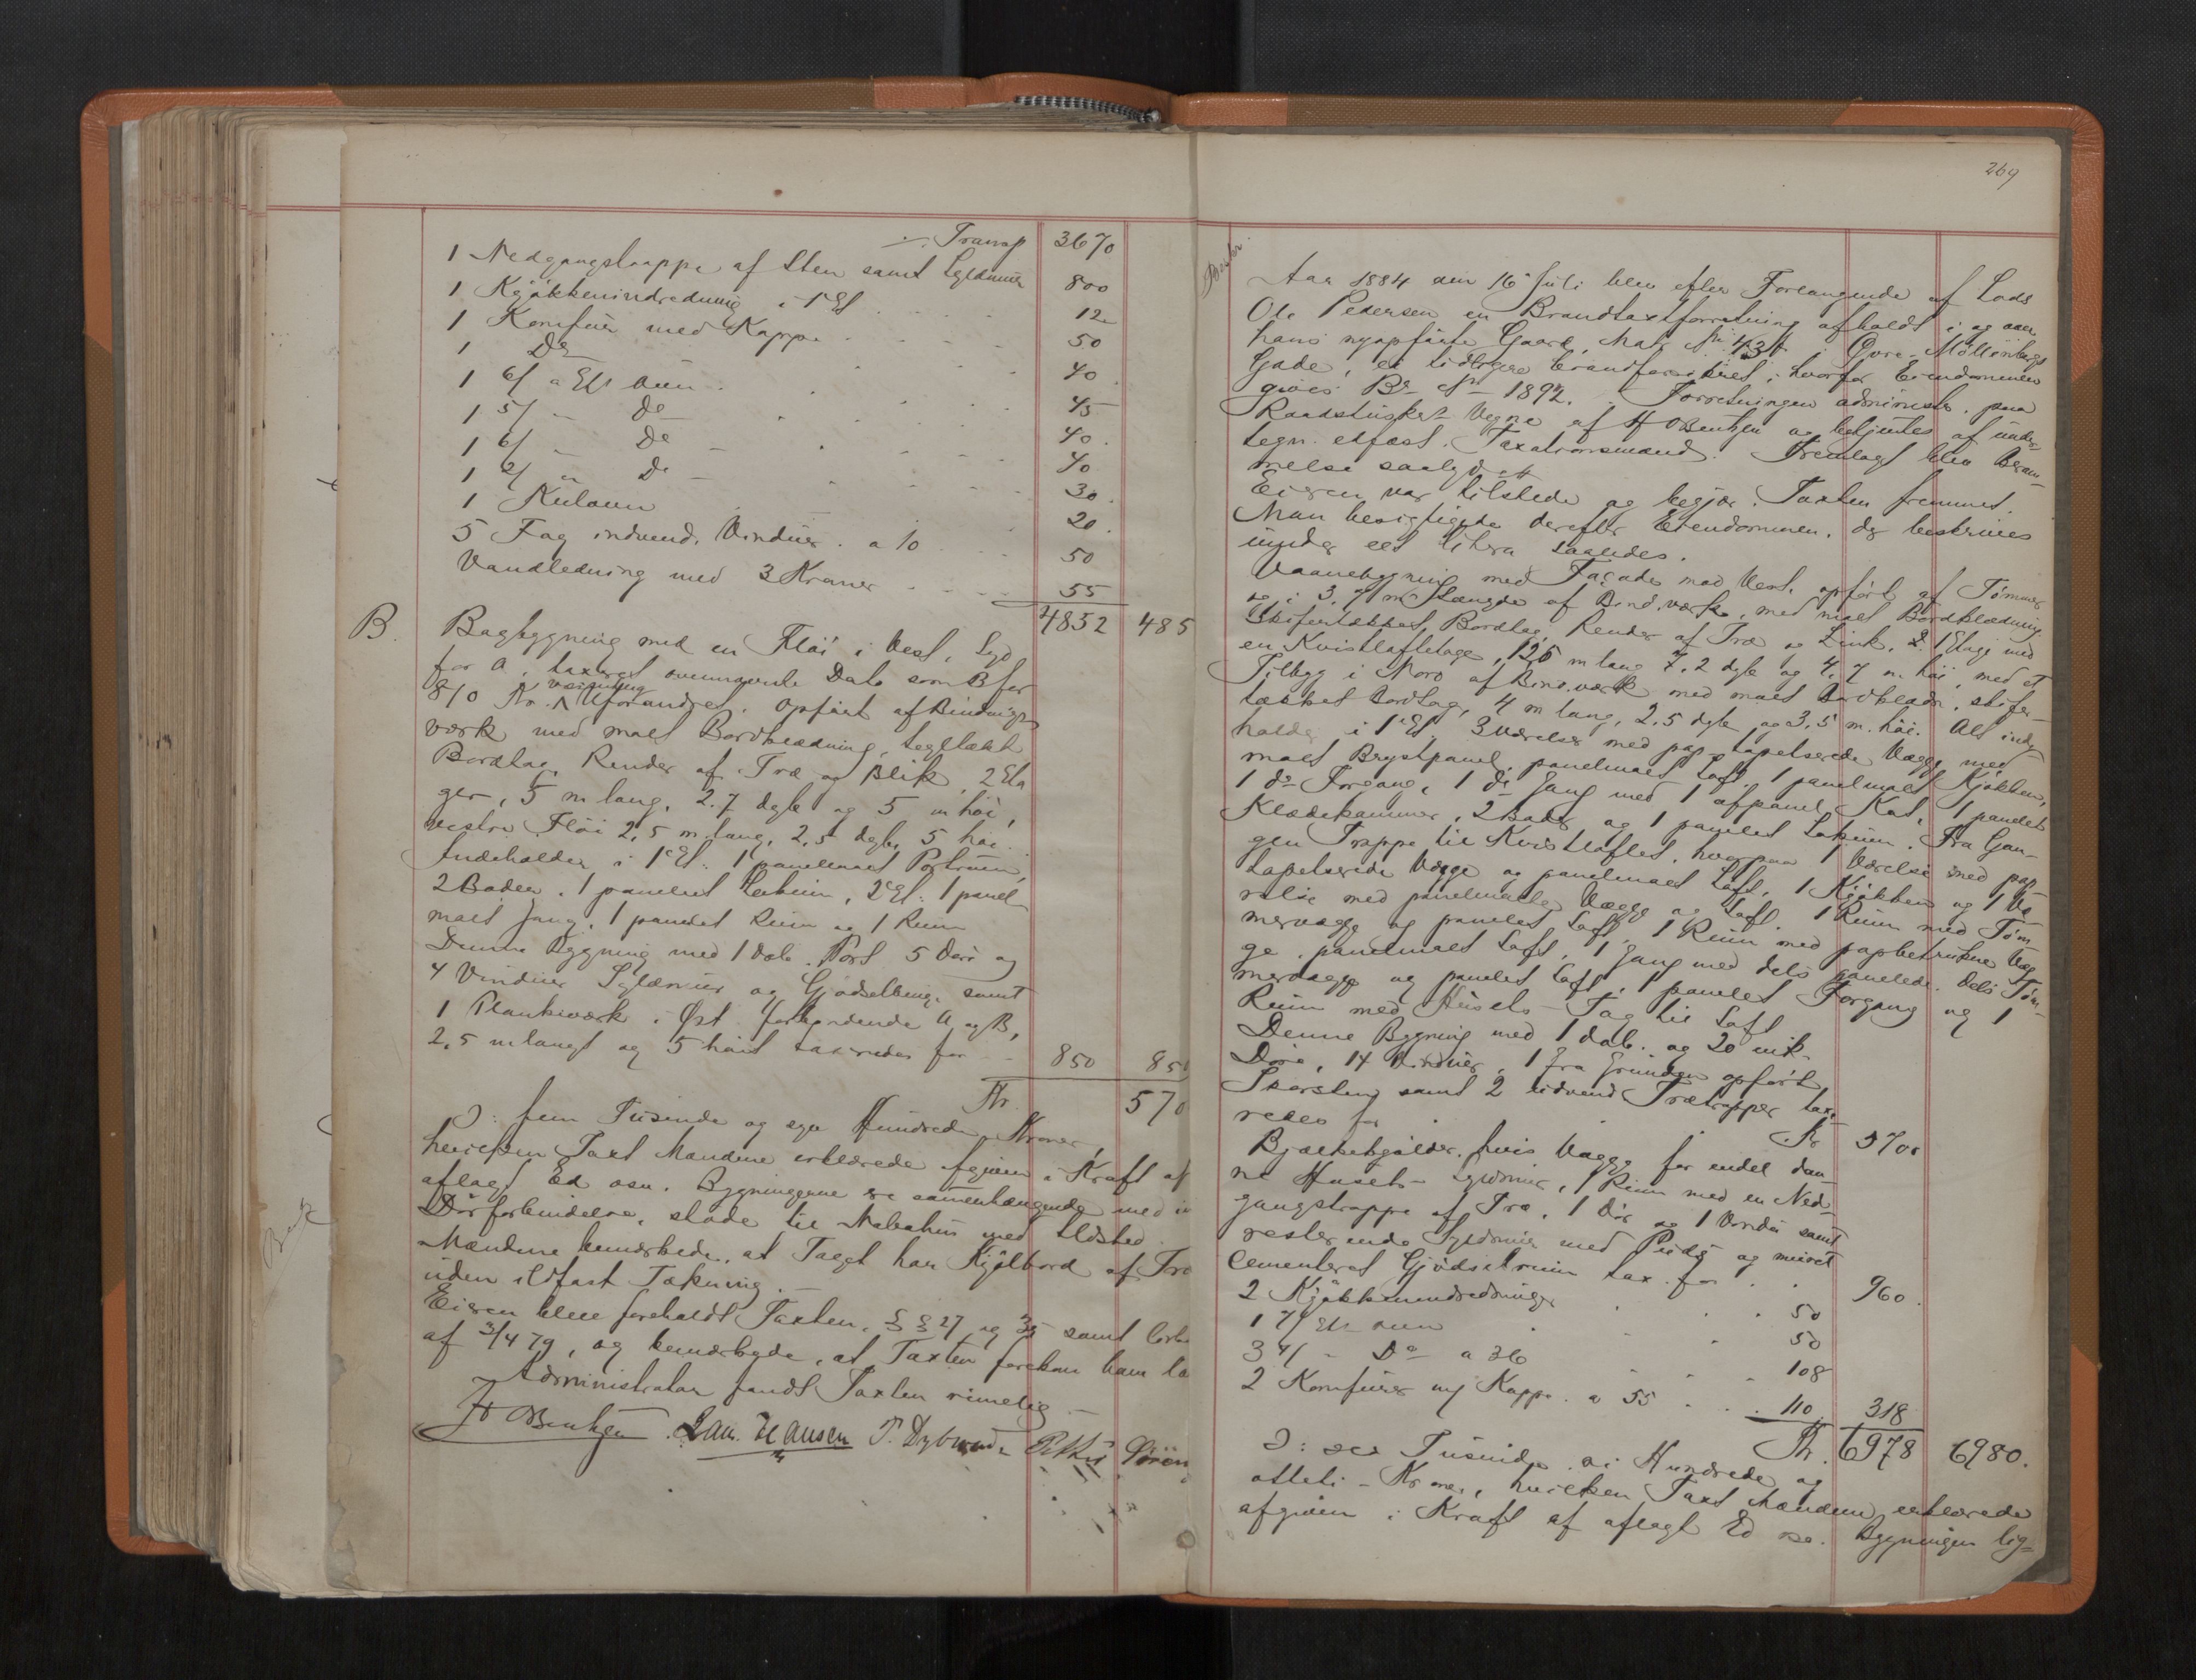 Transp 3670
1 Nedgangstrappe af Sten samt Syldmuur 800
1 Kjøkkenindredning i 1 Et 12
1 Komfuur med Kappe 50
1 Do 40
1 6/ a Et Ovn 45
1 5/ - Do 40
1 6/ - Do 40
1 2/ - Do 30
1 Kulovn 20
5 Fag indvend. Vinduer a 10 50
Vandledning med 3 Kraner 55
4852 485
B. Bagbygning med en Fløi i Vest, Syd
for A, taxeret ovennævnte Dato som B for
810 Kr. væsentlig uforandret. Opført af Bindings
værk med malt Bordklædning, tegltækt
Bordtag, Render af Træ og Blik, 2 Eta
ger, 5 m lang, 2.7 dyb og 5 m høi,
vestre Fløi 2,5 m lang, 2,5 dyb, 5 høi.
Indeholder i 1 Et: 1 panelmalt Portrum,
2 Boder, 1 panelet Lokum, 2 Et: 1 panel
malt Gang, 1 panelet Rum og 1 Rum
Denne Bygning med 1 dob. Port 5 Døre og
4 Vinduer Syldmuur og Gjødselbinge samt
1 Plankeværk i Øst forbindende A og B,
2,5 m langt og 5 høit taxeredes for 850 850
Kr. 570
ɔ: fem Tusinde og syv Hundrede Kroner,
hvilken Taxt Mændene erklærede afgiven i Kraft af
aflagt Ed osv. Bygningerne ere sammenhængende med
Dørforbindelse, støde til Nabohus med Ildsted.
Mændene bemærkede, at Taget har Kjølbord af Træ
uden ildfast Tækning.
Eieren blev foreholdt Taxten, §§ 27 og 35 samt
af 3/4 79, og bemærkede, at Taxten forekom ham
Administrator fandt Taxten rimelig.
H. O. Bentzen. Lau. Hansen P. Dybwad
269
Aar 1884 den 16 Juli blev efter Forlangende af Lods
Ole Pedersen en Brandtaxtforretning afholdt i og over
hans nyopførte Gaard, Matr No 43 i Øvre Møllenbergs
Gade, ei tidligere brandforsikret, hvorfor Eiendommen
gives Br. No 1892. Forretningen administr. paa
Raadstuskr. Vegne af H O Bentzen og betjentes af under
tegn. edfæst. Taxationsmænd. Fremlagt blev Beram-
melse saalydende
Eieren var tilstede og begjær. Taxten fremmet.
Man besigtigede derefter Eiendommen, der beskrives
under eet Litra saaledes.
Vaanebygning med Façade mod Vest, opført af Tømmer
og i 3,7 m Længde af Bind.værk, med malt Bordklædning,
skifertækket Bordtag, Render af Træ og Zink, 1 Etage med
en Kvistloftetage, 12,6 m lang 7,2 dyb og 4,7 m. høi, med et
Tilbyg i Nord af Bind.værk med malt Bordklædn, skifer-
tækket Bordtag, 4 m lang, 2,5 dyb og 3,5 m. høi. Alt inde-
holder i 1 Et. 3 Værelser med pap-tapetserede Vægge med
malt Brystpanel, panelmalt Loft, 1 panelmalt Kjøkken,
1 do Forgang, 1 do Gang med 1 afpanel. Kot, 1 panelet
Klædekammer, 2 Boder og 1 panelet Lokum. Fra Gan-
gen Trappe til Kvistloftet, hvorpaa 1 Værelse med pap-
tapetserede Vægge og panelmalt Loft, 1 Kjøkken og 1 Væ
relse med panelmalte Vægge og Loft, 1 Rum med Tøm-
mervægge og panelet Loft, 1 Rum med papbetrukne Væg
ge, panelmalt Loft, 1 Gang med dels panelede, dels Tøm-
mervægge og panelet Loft, 1 panelet Forgang og 1
Rum med Husets Tag til Loft
Denne Bygning med 1 dob. og 20 enk.
Døre, 14 Vinduer, 1 fra Grunden opført
Skorsten samt 2 udvend Trætrapper taxe
redes for Kr 5700
Bjælkekjælder, hvis Vægge for endel dan-
ne Husets Syldmuur, 1 Rum med en Ned-
gangstrappe af Træ, 1 Dør og 1 Vindu samt
resterende Syldmuur med Puds og muret
cementeret Gjødselrum tax. for 960.
2 Kjøkkenindredninger 50
1 7/ Et Ovn 50
3 4/ - Do a 36 108
2 Komfurer m/ Kappe a 55 110 318
Kr. 6978 6980.
ɔ: sex Tusinde ni Hundrede og
otteti - Kroner, hvilken Taxt Mændene erklærede
afgiven i Kraft af aflagt Ed osv. Bygningen lig-